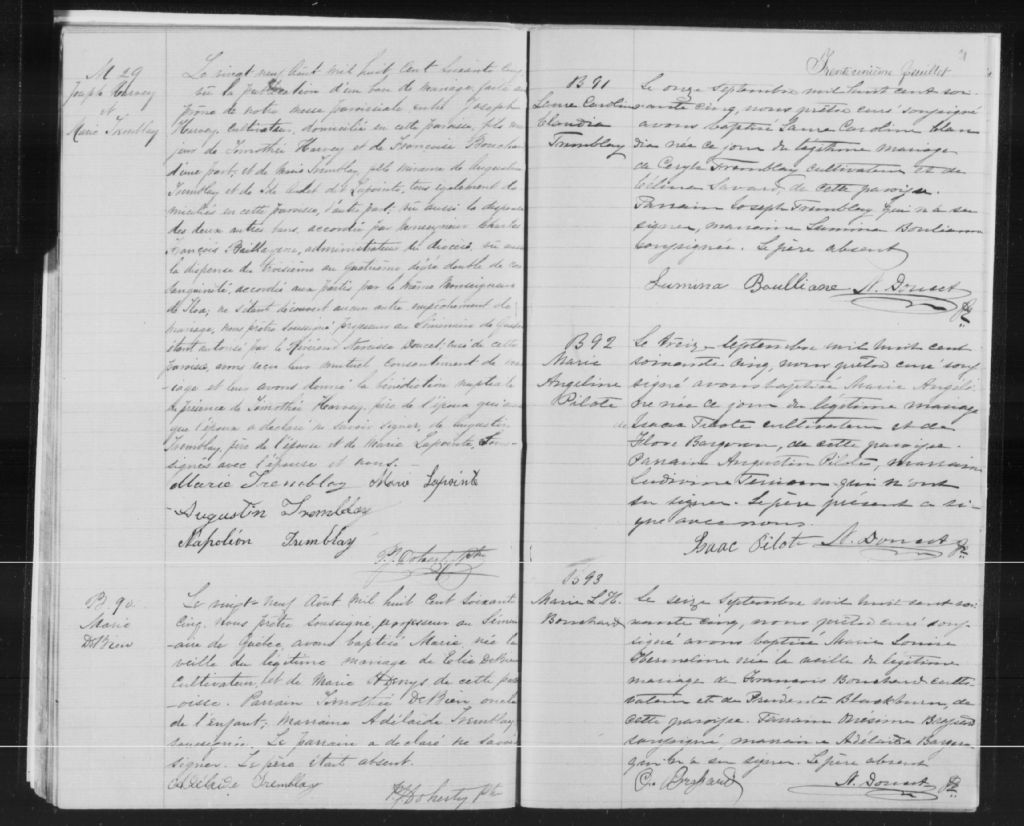 M 29
Joseph Harvey
et
Marie Tremblay
Le vingt neuf Août mil huit cent soixante cinq
vu la publication d'un ban de mariage faite au
prône de notre messe paroissiale entre Joseph
Harvey, cultivateur, domicilié en cette paroisse, fils ma-
jeur de Timothée Harvey et de Françoise Bouchard
d'une part; et de Marie Tremblay, fille mineure de Augustin
Tremblay et de Lapointe, tous également do-
miciliés en cette paroisse, d'autre part; vu aussi la dispense
des deux autres bans, accordée par Monseigneur Charles
François Baillargeon, administrateur du diocèse, vu aussi
la dispense du troisième au quatrième degré double de con-
sanguinité, accordée aux parties par le même Monseigneur
de Tloa; ne s'étant découvert aucun autre empêchement de
mariage, nous prêtre soussigné professeur au Séminaire de Québec
étant autorisé par le Révérend Narcisse Doucet curé de cette
paroisse, avons reçu leur mutuel consentement de ma-
riage et leur avons donné la bénédiction nuptiale
en présence de Timothée Harvey, père de l'époux qui ainsi
que l'époux a déclaré ne savoir signer, de Augustin
Tremblay, père de l'épouse et de Marie Lapointe, sous-
signés avec l'épouse et nous.
Marie Tremblay Marie Lapointe
Augustin Tremblay
Napoléon Tremblay
P. Doherty Ptre
B. 90
Marie
DeBien
Le vingt-neuf Août mil huit cent soixante
cinq. Nous prêtre soussigné, professeur au Sémi-
naire de Québec, avons baptisé Marie née la
veille du légitime mariage de Eolie DeBien
cultivateur et de Marie Denys de cette par-
oisse. Parrain Timothée DeBien, oncle
de l'enfant. Marraine Adélaïde Tremblay
soussignée. Le parrain a déclaré ne savoir
signer. Le père était absent.
Adélaïde Tremblay
P. Doherty Ptre
Trente unième feuillet
B 91
Laure Caroline
Claudia
Tremblay
Le onze septembre mil huit cent soi-
xante cinq, nous, prêtre curé soussigné
avons baptisé Laure Caroline Clau
dia née ce jour du légitime mariage
de Tremblay cultivateur et de
Céline Savard, de cette paroisse.
Parrain Joseph Tremblay qui n'a su
signer, marraine Lumina Boulianne
soussignée. Le père absent
Lumina Boulliane N. Doucet Ptre
B 92
Marie
Angeline
Pilote
Le treize septembre mil huit cent
soixante cinq, nous prêtre curé sous
signé avons baptisé Marie Angeli
ne née ce jour du légitime mariage
de Isaac Pilote cultivateur et de
Flore Bergeron, de cette paroisse.
Parrain Augustin Pilote, marraine
Ludivine qui n'ont
su signer. Le père présent a si-
gné avec nous.
Isaac Pilote N. Doucet Ptre
B 93
Marie L. H.
Bouchard
Le seize septembre mil huit cent soi-
xante cinq, nous, prêtre curé sous-
signé avons baptisé Marie Louise
Hermeline née la veille du légitime
mariage de François Bouchard culti-
vateur et de Présidente Blackburn, de
cette paroisse. Parrain Onésime
soussigné, marraine Adélaïde
qui n'a su signer. Le père absent
N. Doucet Ptre